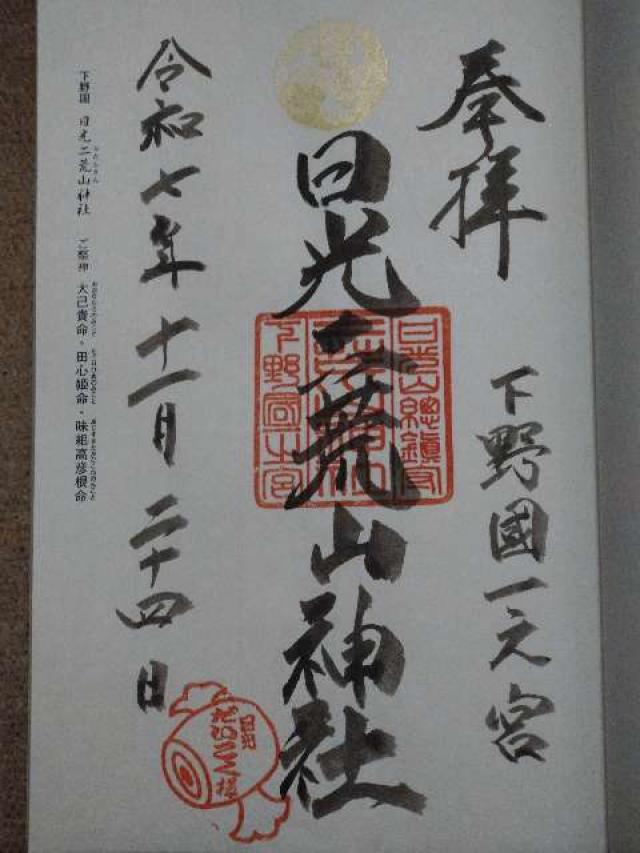 奉拝
下野國一之宮
日光二荒山神社
日光山總鎮守
下野國一之宮
令和七年十一月二十四日
日光
だいこく様
下野国 日光二荒山神社 ご祭神 大己貴命・田心姫命・味耜高彦根命
ふたらさん